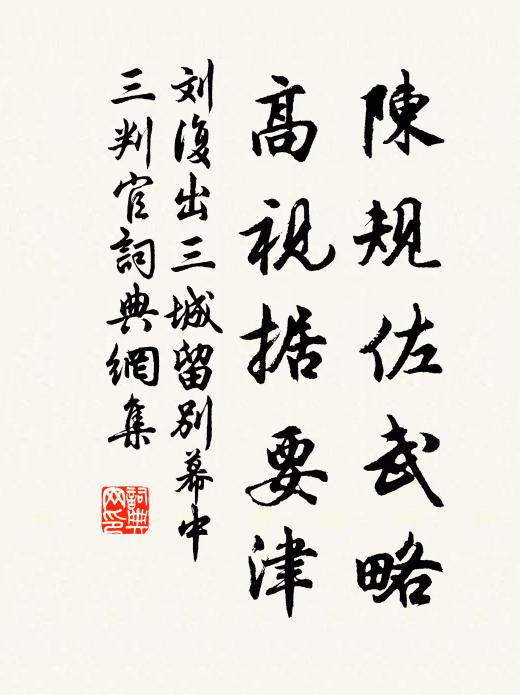 陳規佐武略
高視据要津
刘復出三城留別幕中
三判官詞典網集
詞典网印